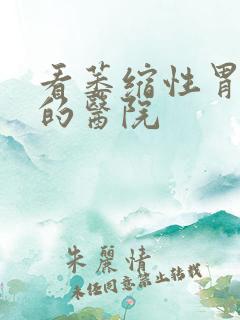 看萎缩性胃
的醫院
朱麗情
未任同意禁止转载